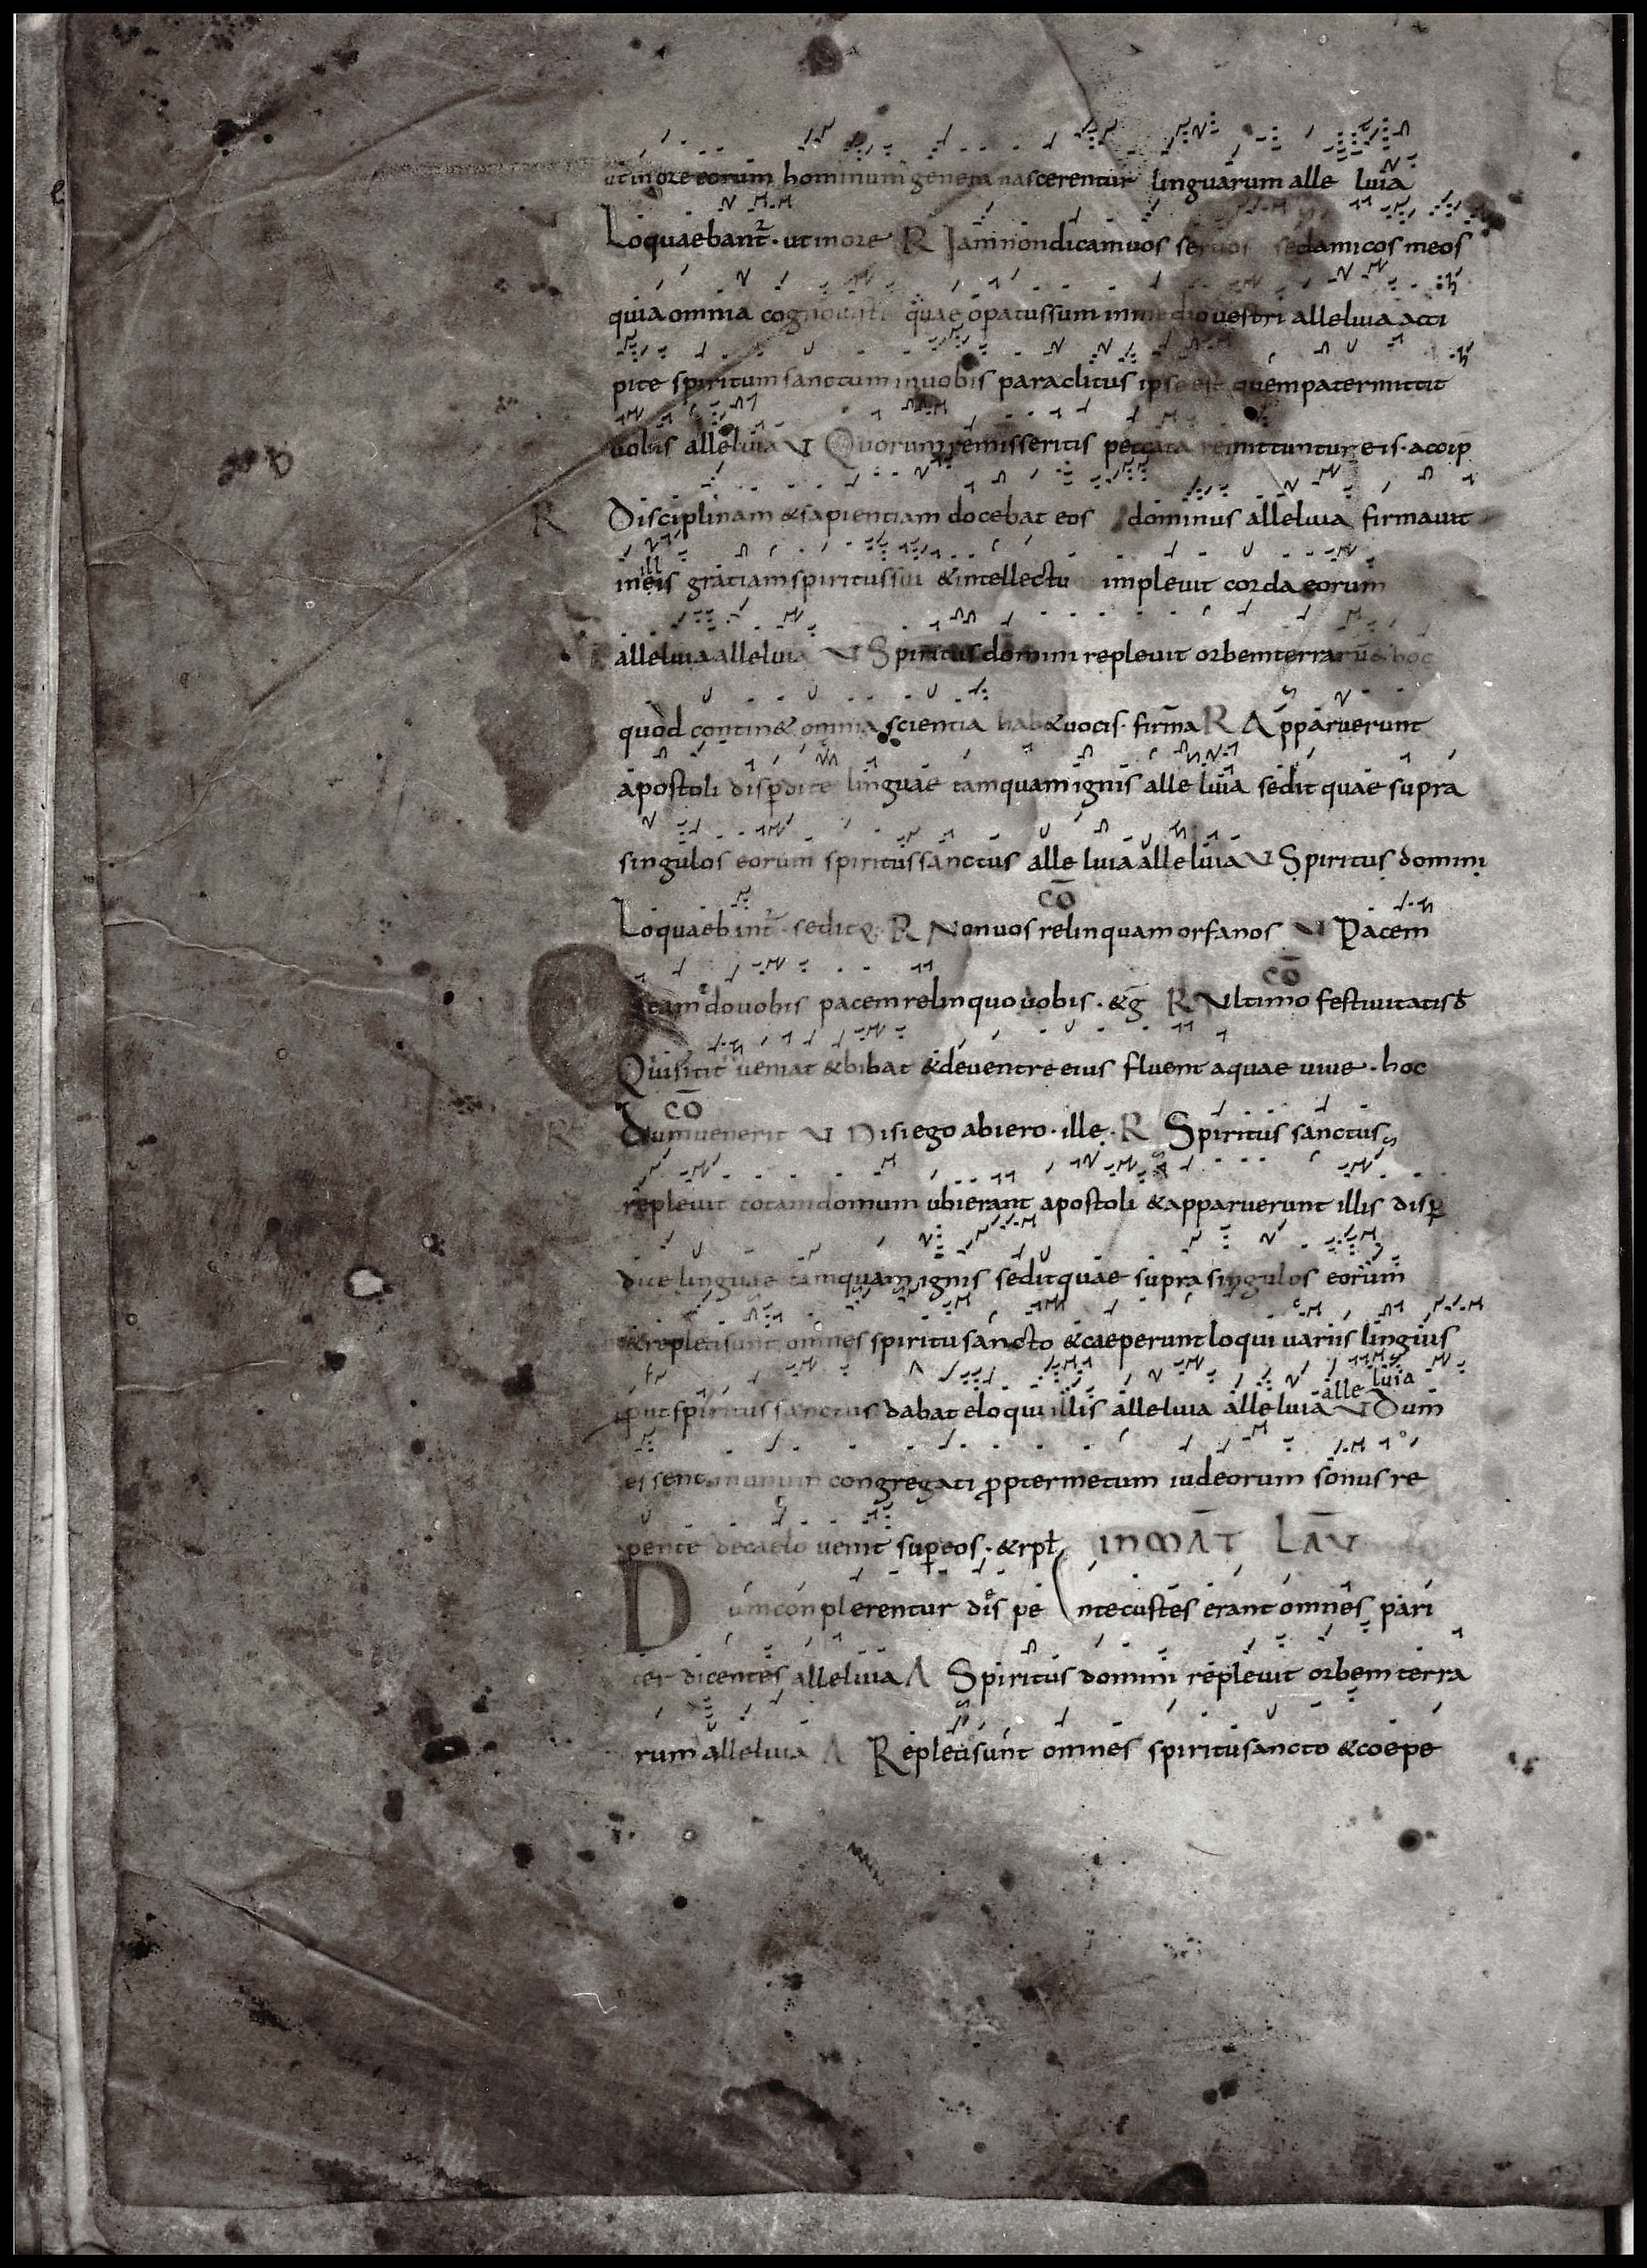 ut in ore eorum hominum genera nascerentur linguarum alle luia
Loquaebant̃ · ut in ore R Iam non dicam uos seruos sed amicos meos
quia omnia cognouisti quae opatus sum in medio uestri alleluia acci
pite spiritum sanctum in uobis paraclitus ipse est quem pater mittit
uobis alleluia V Quorum remisseritis peccata remittuntur eis · accip
R Disciplinam & sapientiam docebat eos dominus alleluia firmauit
ill
in eis gratiam spiritus sui & intellectu impleuit corda eorum
alleluia alleluia V Spiritus domini repleuit orbem terrarū & hoc
quod contin& omnia scientia hab& uocis · firma R Apparuerunt
apostoli disp̄dite linguae tamquam ignis alle luia sedit quae supra
singulos eorum spiritus sanctus alle luia alleluia V Spiritus domini
cō
Loquaebant̃ · seditq; R Non uos relinquam orfanos V Pacem
cō
meam do uobis pacem relinquo uobis · &g̅ R Ultimo festiuitatis đ
Qui sitit ueniat & bibat & de uentre eius fluent aquae uiue · hoc
cō
R Dum uenerit V Nisi ego abiero · ille · R Spiritus sanctus
repleuit totam domum ubi erant apostoli & apparuerunt illis disp̄
dite linguae tamquam ignis sedit quae supra singulos eorum
& repleti sunt omnes spiritu sancto & caeperunt loqui variis lingius
alle luia
put spiritus sanctus dabat eloqui illis alleluia alleluia V Dum
essent in unum congregati ꝓpter metum iudeorum sonus re
pente de caelo uenit sup̄ eos · & rpł IN MĀT LAV
Dum conplerentur dies pe ntecustes erant omnes pari
ter dicentes alleluia A Spiritus domini repleuit orbem terra
rum alleluia A Repleti sunt omnes spiritu sancto & coepe